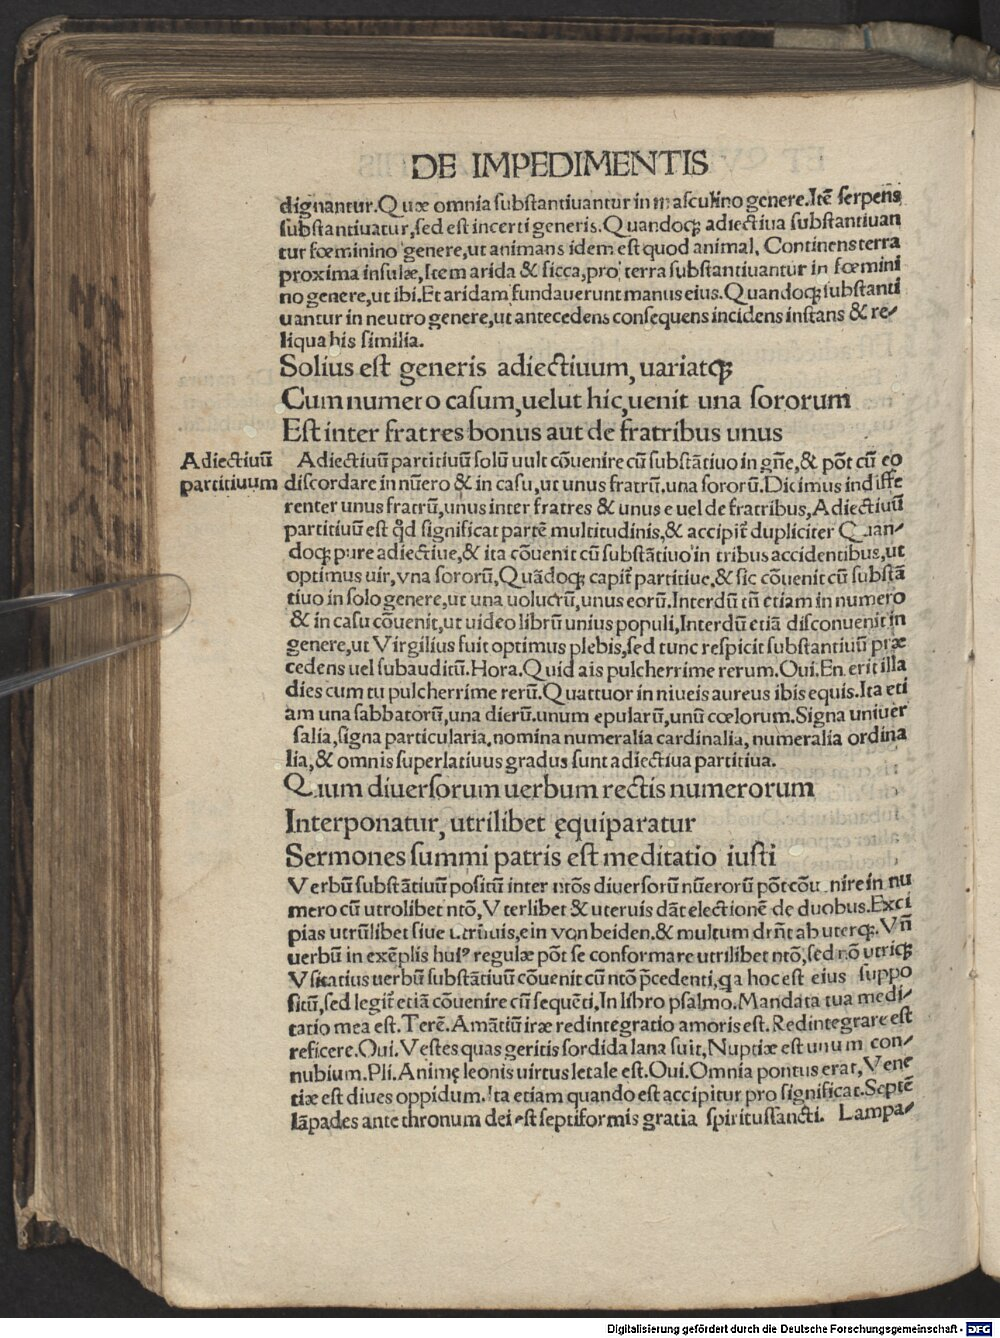 DE IMPEDIMENTIS
dignantur.Quæ omnia substantiuantur in masculino genere.Itē serpens
substantiuatur,sed est incerti generis.Quandoqꝫ adiectiua substantiuan
tur fœminino genere,ut animans idem est quod animal, Continens terra
proxima insulæ,Item arida & sicca,pro terra substantiuantur in fœmini
no genere,ut ibi.Et aridam fundauerunt manus eius.Quandoqꝫ substanti
uantur in neutro genere,ut antecedens consequens incidens instans & re/
liqua his similia.
Solius est generis adiectiuum, uariatqꝫ
Cum numero casum,uelut hic,uenit una sororum
Est inter fratres bonus aut de fratribus unus
Adiectiuū
partitiuum
Adiectiuū partitiuū solū uult cōuenire cū substātiuo in gn̄e,& pōt cū eo
discordare in nūero & in casu,ut unus fratrū.una sororū.Dicimus indiffe
renter unus fratrū,unus inter fratres & unus e uel de fratribus,Adiectiuū
partitiuū est qd̄ significat partē multitudinis,& accipit̄ dupliciter Quan/
doqꝫ pure adiectiue,& ita cōuenit cū substātiuo in tribus accidentibus,ut
optimus uir,vna sororū,Quādoqꝫ capit̄ partitiue,& sic cōuenit cū substā
tiuo in solo genere,ut una uolucrū,unus eorū.Interdū tn̄ etiam in numero
& in casu cōuenit,ut uideo librū unius populi,Interdū etiā disconuenit in
genere,ut Virgilius fuit optimus plebis,sed tunc respicit substantiuū præ
cedens uel subauditū.Hora.Quid ais pulcherrime rerum.Oui.En erit illa
dies cum tu pulcherrime rerū.Quattuor in niueis aureus ibis equis.Ita eti
am una sabbatorū,una dierū.unum epularū,unū cœlorum.Signa uniuer
salia,signa particularia,nomina numeralia cardinalia, numeralia ordina
lia,& omnis superlatiuus gradus sunt adiectiua partitiua.
Quum diuersorum uerbum rectis numerorum
Interponatur, utrilibet ęquiparatur
Sermones summi patris est meditatio iusti
Verbū substātiuū positū inter ntōs diuersorū nūerorū pōt cōuenire in nu
mero cū utrolibet ntō,Vterlibet & uteruis dāt electionē de duobus.Exci
pias utrūlibet siue utrūuis,ein von beiden.& multum drn̄t ab uterqꝫ.Vn̄
uerbū in exēplis huiꝰ regulæ pōt se conformare utrilibet ntō,sed nō utriqꝫ
Vsitatius uerbū substātiuū cōuenit cū ntō p̄cedenti,qa hoc est eius suppo
sitū,sed legit̄ etiā cōuenire cū sequēti,In libro psalmo.Mandata tua medi/
tatio mea est.Terē.Amātiū iræ redintegratio amoris est.Redintegrare est
reficere.Oui.Vestes quas geritis sordida lana fuit,Nuptiæ est unum con/
nubium.Pli.Animę leonis uirtus letale est.Oui.Omnia pontus erat,Vene
tiæ est diues oppidum.Ita etiam quando est accipitur pro significat.Septē
lāpades ante thronum dei est septiformis gratia spiritussancti. Lampa/
Digitalisierung gefördert durch die Deutsche Forschungsgemeinschaft - DFG